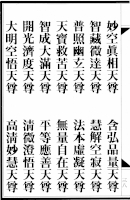 妙空眞相天尊　含弘品量天尊
智藏微達天尊　慧解空寂天尊
普照幽玄天尊　法本虛凝天尊
天寶救苦天尊　無量自在天尊
智成大滿天尊　平等應善天尊
開光濟度天尊　清微澄悟天尊
大明空悟天尊　高清妙慧天尊